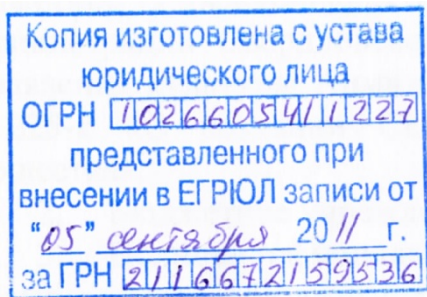 Копия изготовлена с устава
юридического лица
ОГРН 1026605411227
представленного при
внесении в ЕГРЮЛ записи от
"05" сентября 2011 г.
за ГРН 2116672159536